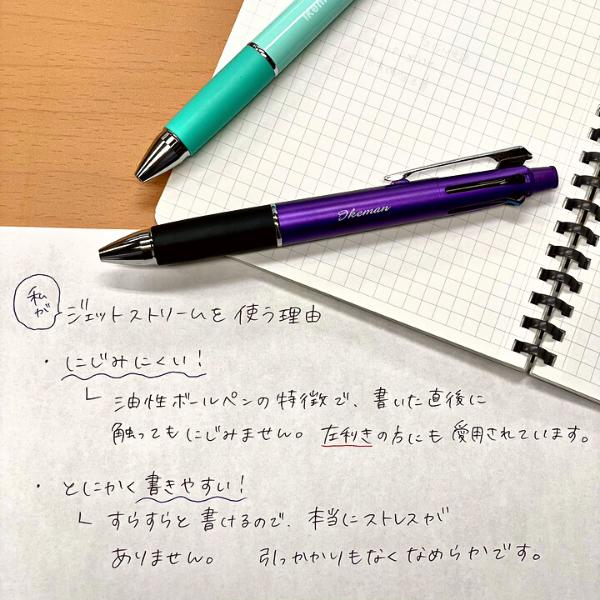 Ikeman
私が
ジェットストリームを使う理由
・にじみにくい!
└ 油性ボールペンの特徴で、書いた直後に
触ってもにじみません。左利きの方にも愛用されています。
・とにかく書きやすい!
└ すらすらと書けるので、本当にストレスが
ありません。 引っかかりもなくなめらかです。